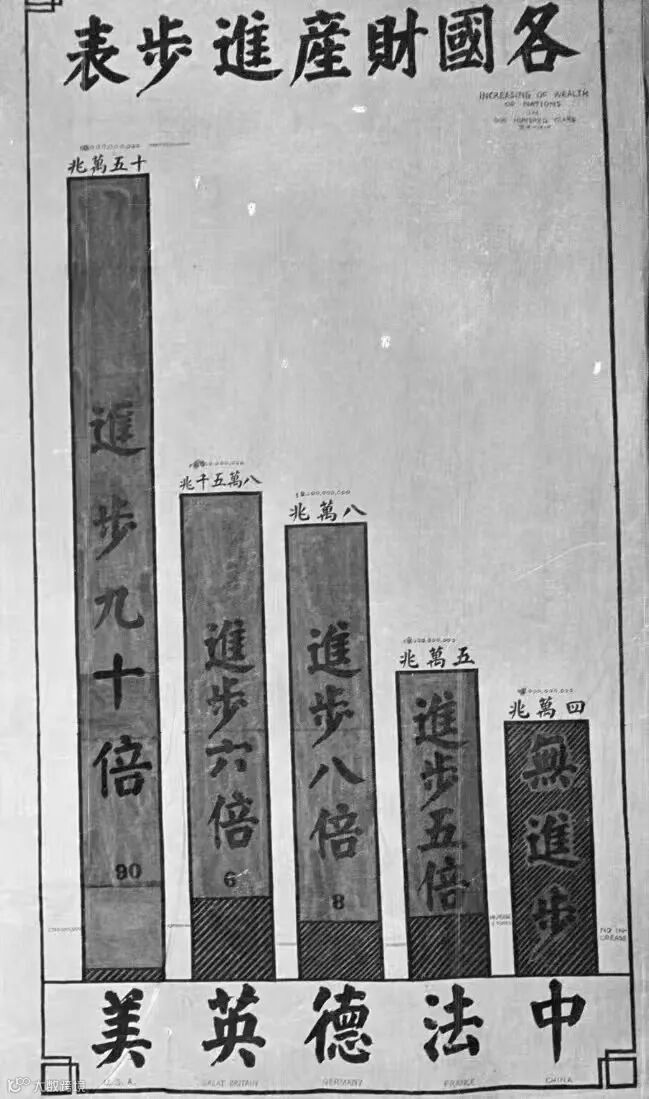 各國財產進步表
INCREASING OF WEALTH
OF NATIONS
IN
ONE HUNDRED YEARS
十五萬兆
進步九十倍
90
八萬五千兆
進步六倍
6
八萬兆
進步八倍
8
五萬兆
進步五倍
四萬兆
無進步
NO IN-
CREASE
中法德英美
U.S.A.
GREAT BRITAIN
GERMANY
FRANCE
CHINA
大数跨境